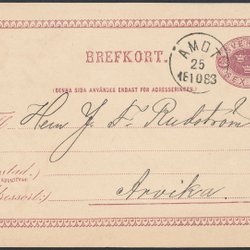 BREFKORT.
(DENNA SIDA ANVÄNDES ENDAST FÖR ADRESSERINGEN.)
ÅMOT
25
1883
SEX
Herr J. F. Rudström
Arvika.